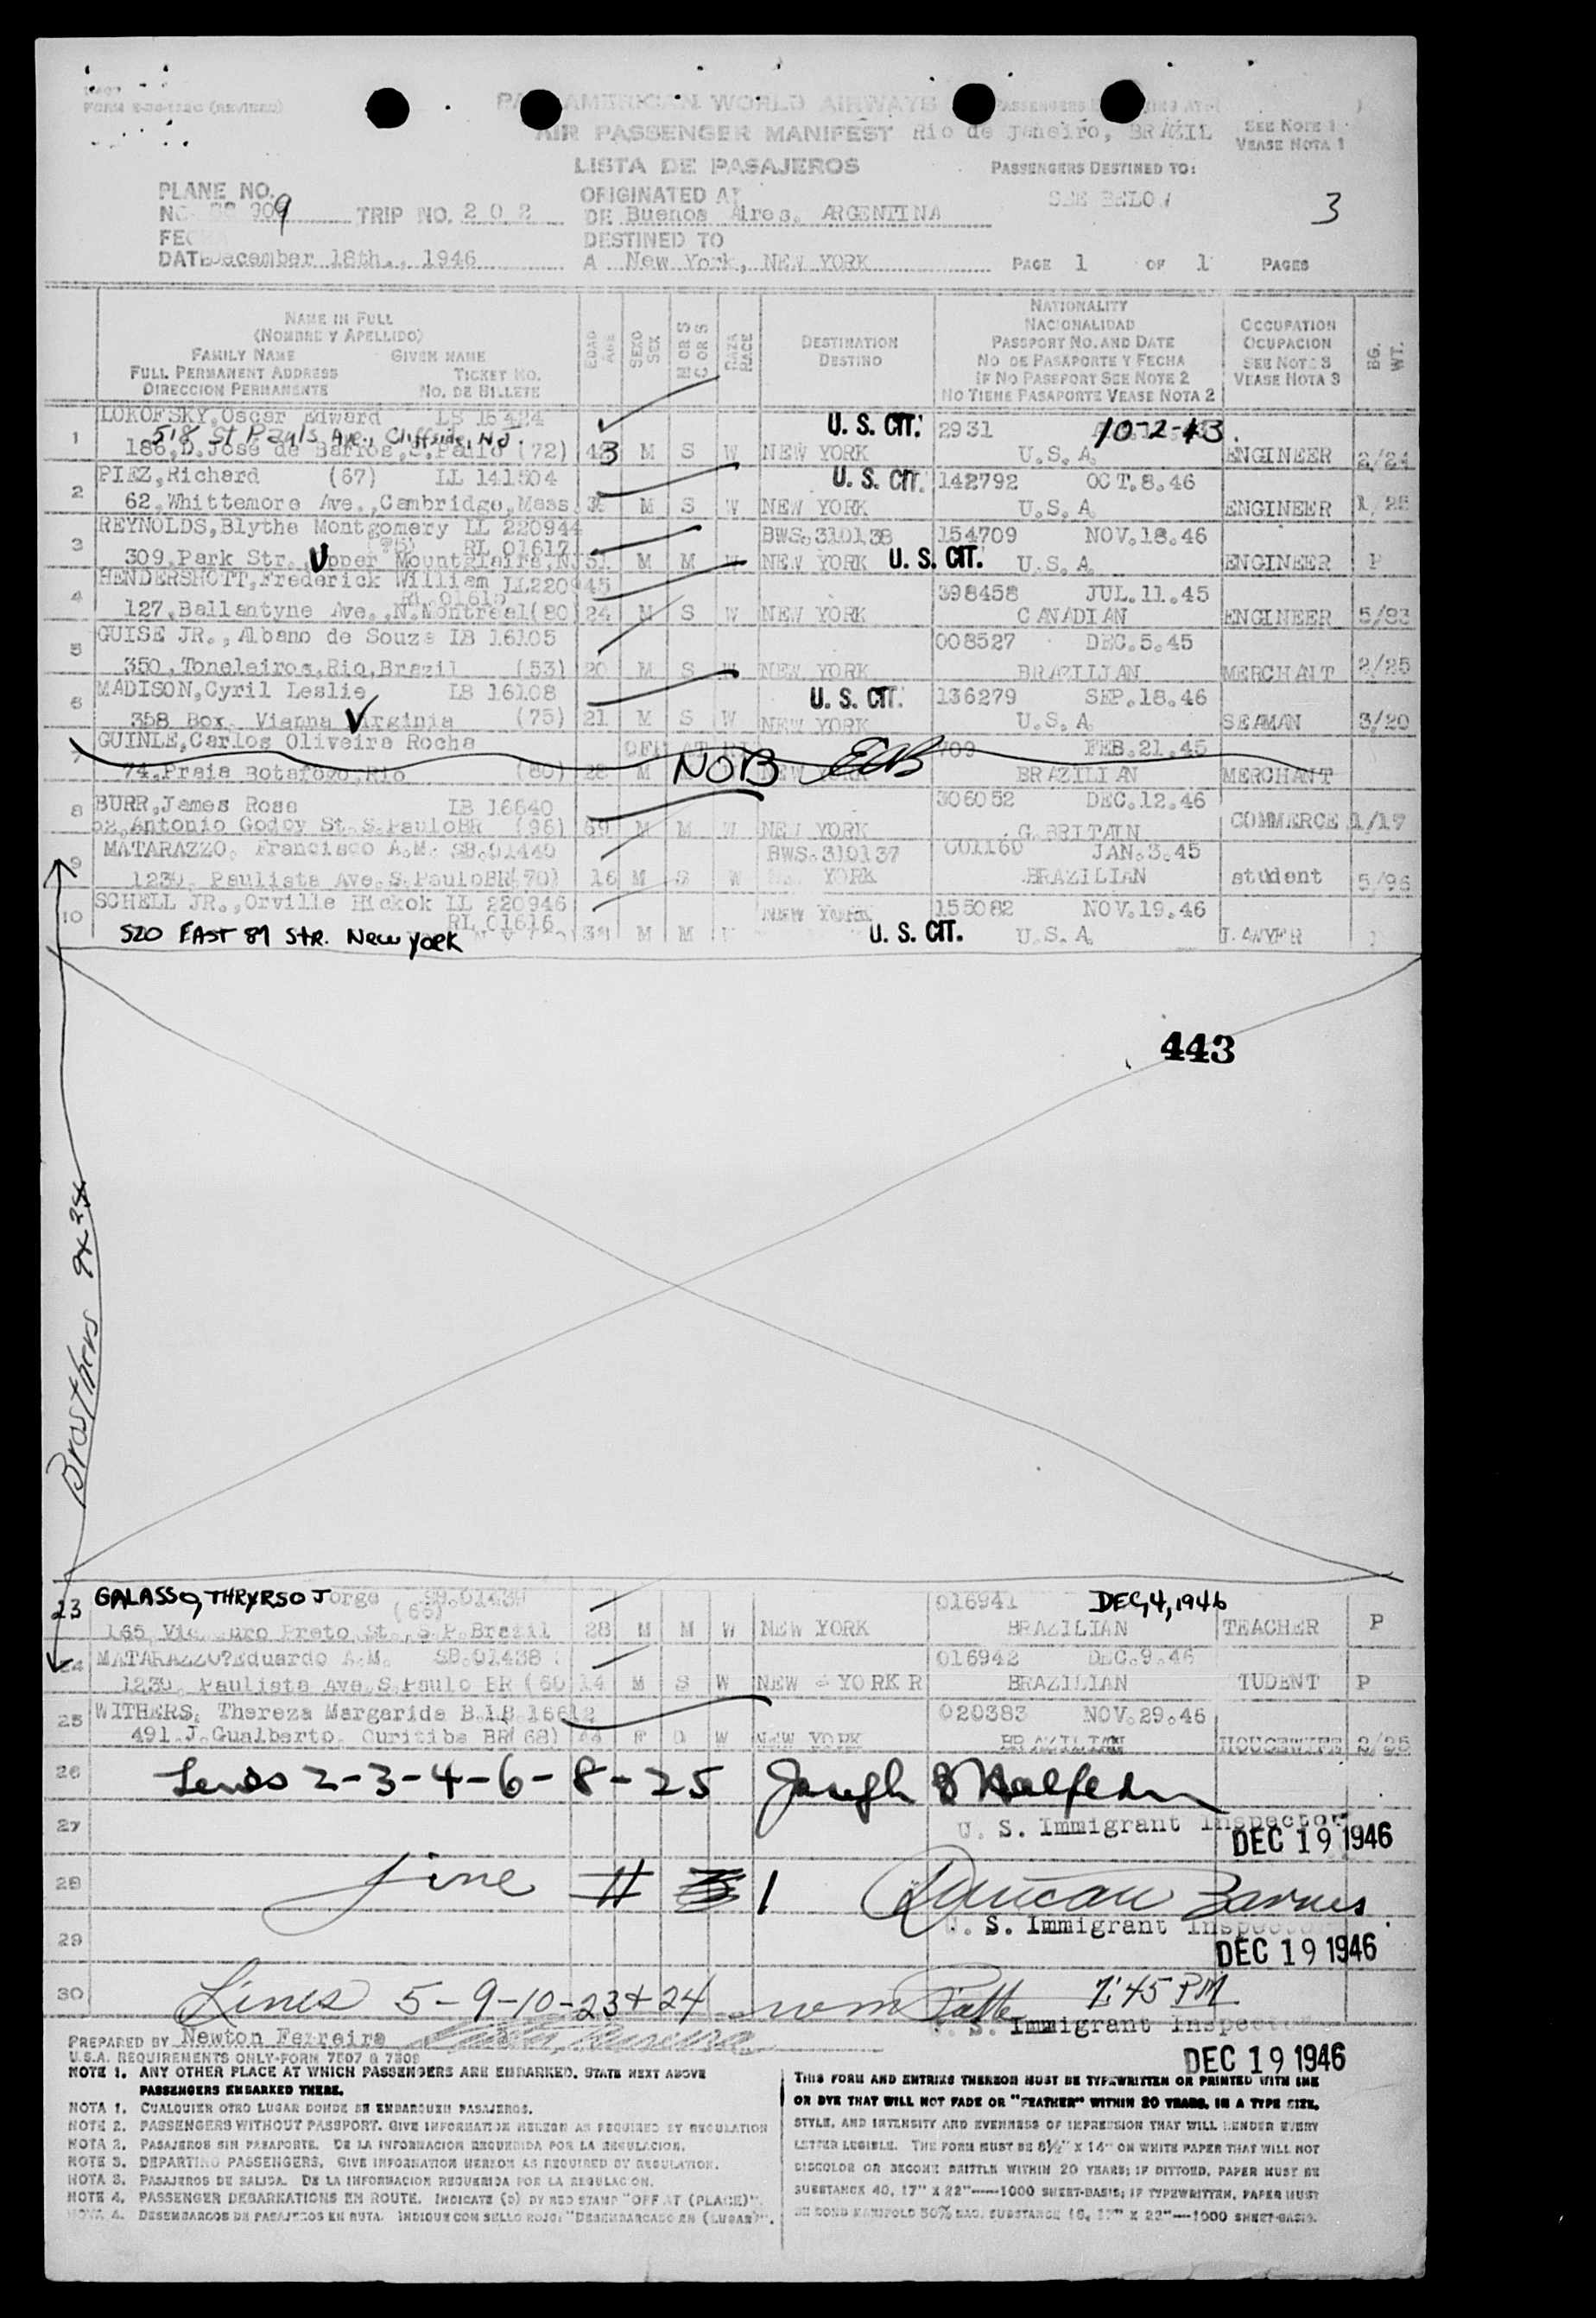 FORM (REVISED)
PAN AMERICAN WORLD AIRWAYS
AIR PASSENGER MANIFEST Rio de Janeiro, BRAZIL
SEE NOTE 1
VEASE NOTA 1
LISTA DE PASAJEROS
PASSENGERS DESTINED TO:
PLANE NO.
ORIGINATED AT
SEE BELOW
3
909 TRIP NO. 202
DE Buenos Aires. ARGENTINA
DESTINED TO
DATE December 18th., 1946
A New York, NEW YORK
PAGE 1 OF 1 PAGES
NAME IN FULL
(NOMBRE Y APELLIDO)
FAMILY NAME GIVEN NAME
FULL PERMANENT ADDRESS TICKET NO.
DIRECCION PERMANENTE NO. DE BILLETE
EDAD AGE
SEXO SEX
M OR S
C OR S
RAZA RACE
DESTINATION
DESTINO
NATIONALITY
NACIONALIDAD
PASSPORT NO. AND DATE
NO DE PASAPORTE Y FECHA
IF NO PASSPORT SEE NOTE 2
NO TIENE PASAPORTE VEASE NOTA 2
OCCUPATION
OCUPACION
SEE NOTE 3
VEASE NOTA 3
BG. WT.
LOKOFSKY, Oscar Edward LB 16424 U. S. CIT. 2931 10-2-43.
518 St Pauls Ave., Cliffside, NJ.
1 186, D. Jose de Barros, S. Paulo (72) 43 M S W NEW YORK U.S.A. ENGINEER 2/24
PIEZ, Richard (67) LL 141504 U. S. CIT. 142792 OCT.8.46
2 62, Whittemore Ave., Cambridge, Mass M S W NEW YORK U.S.A ENGINEER 1/25
REYNOLDS, Blythe Montgomery LL 220944 BWS.310138 154709 NOV.18.46
(75) RL 01617
3 309, Park Str., Upper Mountclaire, NJ 31 M M W NEW YORK U. S. CIT. U.S.A. ENGINEER P
HENDERSHOTT, Frederick William LL220945 398458 JUL.11.45
RL 01615
4 127, Ballantyne Ave., N. Montreal (80) 24 M S W NEW YORK CANADIAN ENGINEER 5/83
GUISE JR., Albano de Souza LB 16105 008527 DEC.5.45
5 350, Toneleiros, Rio, Brazil (53) 20 M S W NEW YORK BRAZILIAN MERCHANT 2/25
MADISON, Cyril Leslie LB 16108 U. S. CIT. 136279 SEP.18.46
6 358 Box Vianna Virginia (75) 21 M S W NEW YORK U.S.A. SEAMAN 3/20
GUINLE, Carlos Oliveira Rocha 709 FEB.21.45
7 74, Praia Botafogo, Rio (80) 28 M NOB NEW YORK BRAZILIAN MERCHANT
BURR, James Rose LB 16640 306052 DEC.12.46
8 52, Antonio Godoy St. S. Paulo BR (96) 69 M M W NEW YORK G. BRITAIN COMMERCE 1/17
MATARAZZO, Francisco A.M. SB.01440 BWS.310137 001160 JAN.3.45
9 1230, Paulista Ave. S. Paulo BR (70) 16 M S W YORK BRAZILIAN student 5/96
SCHELL JR., Orville Hickok LL 220946 NEW YORK 155082 NOV.19.46
RL 01616
10 520 EAST 89 STR. New York 38 M M U. S. CIT. U.S.A. LAWYER
443
Brothers 9 & 24
GALASSO, THRYRSO Jorge SB.01439 016941 DEC, 4, 1946
23 (65)
165, Preto St., S.P. Brazil 28 M M W NEW YORK BRAZILIAN TEACHER P
MATARAZZO?Eduardo A.M. SB.01438 016942 DEC.9.46
24 1230, Paulista Ave. S. Paulo BR (60 14 M S W NEW YORK R BRAZILIAN TUDENT P
WITHERS, Thereza Margarida B. LB 16612 020383 NOV.29.46
25 491, J. Gualberto, Curitiba BR( 68) 44 F W NEW YORK BRAZILIAN HOUSEWIFE 2/25
26 Lines 2-3-4-6-8-25 Joseph
27 U. S. Immigrant Inspector
DEC 19 1946
28 Line # 1 Duncan Barnes
U. S. Immigrant Inspector
29 DEC 19 1946
30 Lines 5-9-10-23 + 24 7:45 PM
U. S. Immigrant Inspector
PREPARED BY Newton Ferreira
DEC 19 1946
U.S.A. REQUIREMENTS ONLY-FORM 7507 & 7509
NOTE 1. ANY OTHER PLACE AT WHICH PASSENGERS ARE EMBARKED. STATE NEXT ABOVE
PASSENGERS EMBARKED THERE.
NOTA 1. CUALQUIER OTRO LUGAR DONDE SE EMBARQUEN PASAJEROS.
NOTE 2. PASSENGERS WITHOUT PASSPORT. GIVE INFORMATION HEREON AS REQUIRED BY REGULATION
NOTA 2. PASAJEROS SIN PASAPORTE. DE LA INFORMACION REQUERIDA POR LA REGULACION.
NOTE 3. DEPARTING PASSENGERS. GIVE INFORMATION HEREON AS REQUIRED BY REGULATION.
NOTA 3. PASAJEROS DE SALIDA. DE LA INFORMACION REQUERIDA POR LA REGULACION.
NOTE 4. PASSENGER DEBARKATIONS EN ROUTE. INDICATE (D) BY RED STAMP "OFF AT (PLACE)".
NOTA 4. DESEMBARCOS DE PASAJEROS EN RUTA. INDIQUE CON SELLO ROJO: "DESEMBARCADO EN (LUGAR)".
THIS FORM AND ENTRIES THEREON MUST BE TYPEWRITTEN OR PRINTED WITH INK
OR DYE THAT WILL NOT FADE OR "FEATHER" WITHIN 20 YEARS, IN A TYPE SIZE,
STYLE, AND INTENSITY AND EVENNESS OF IMPRESSION THAT WILL RENDER EVERY
LETTER LEGIBLE. THE FORM MUST BE 8½" X 14" ON WHITE PAPER THAT WILL NOT
DISCOLOR OR BECOME BRITTLE WITHIN 20 YEARS; IF DITTOED, PAPER MUST BE
SUBSTANCE 40, 17" X 22"—1000 SHEET-BASIS; IF TYPEWRITTEN, PAPER MUST
BE BOND MANIFOLD 50% RAG, SUBSTANCE 16, 17" X 22"—1000 SHEET-BASIS.